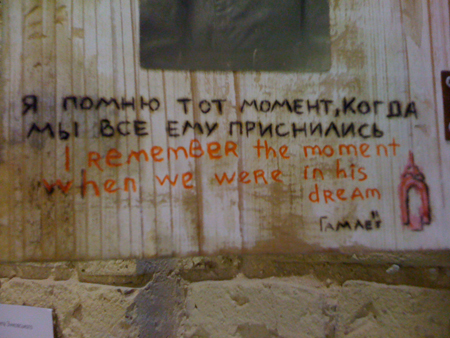 Я ПОМНЮ ТОТ МОМЕНТ, КОГДА
МЫ ВСЕ ЕМУ ПРИСНИЛИСЬ
I REMEMBER the moment
when we were in his
DREAM
ГАМЛЕТ